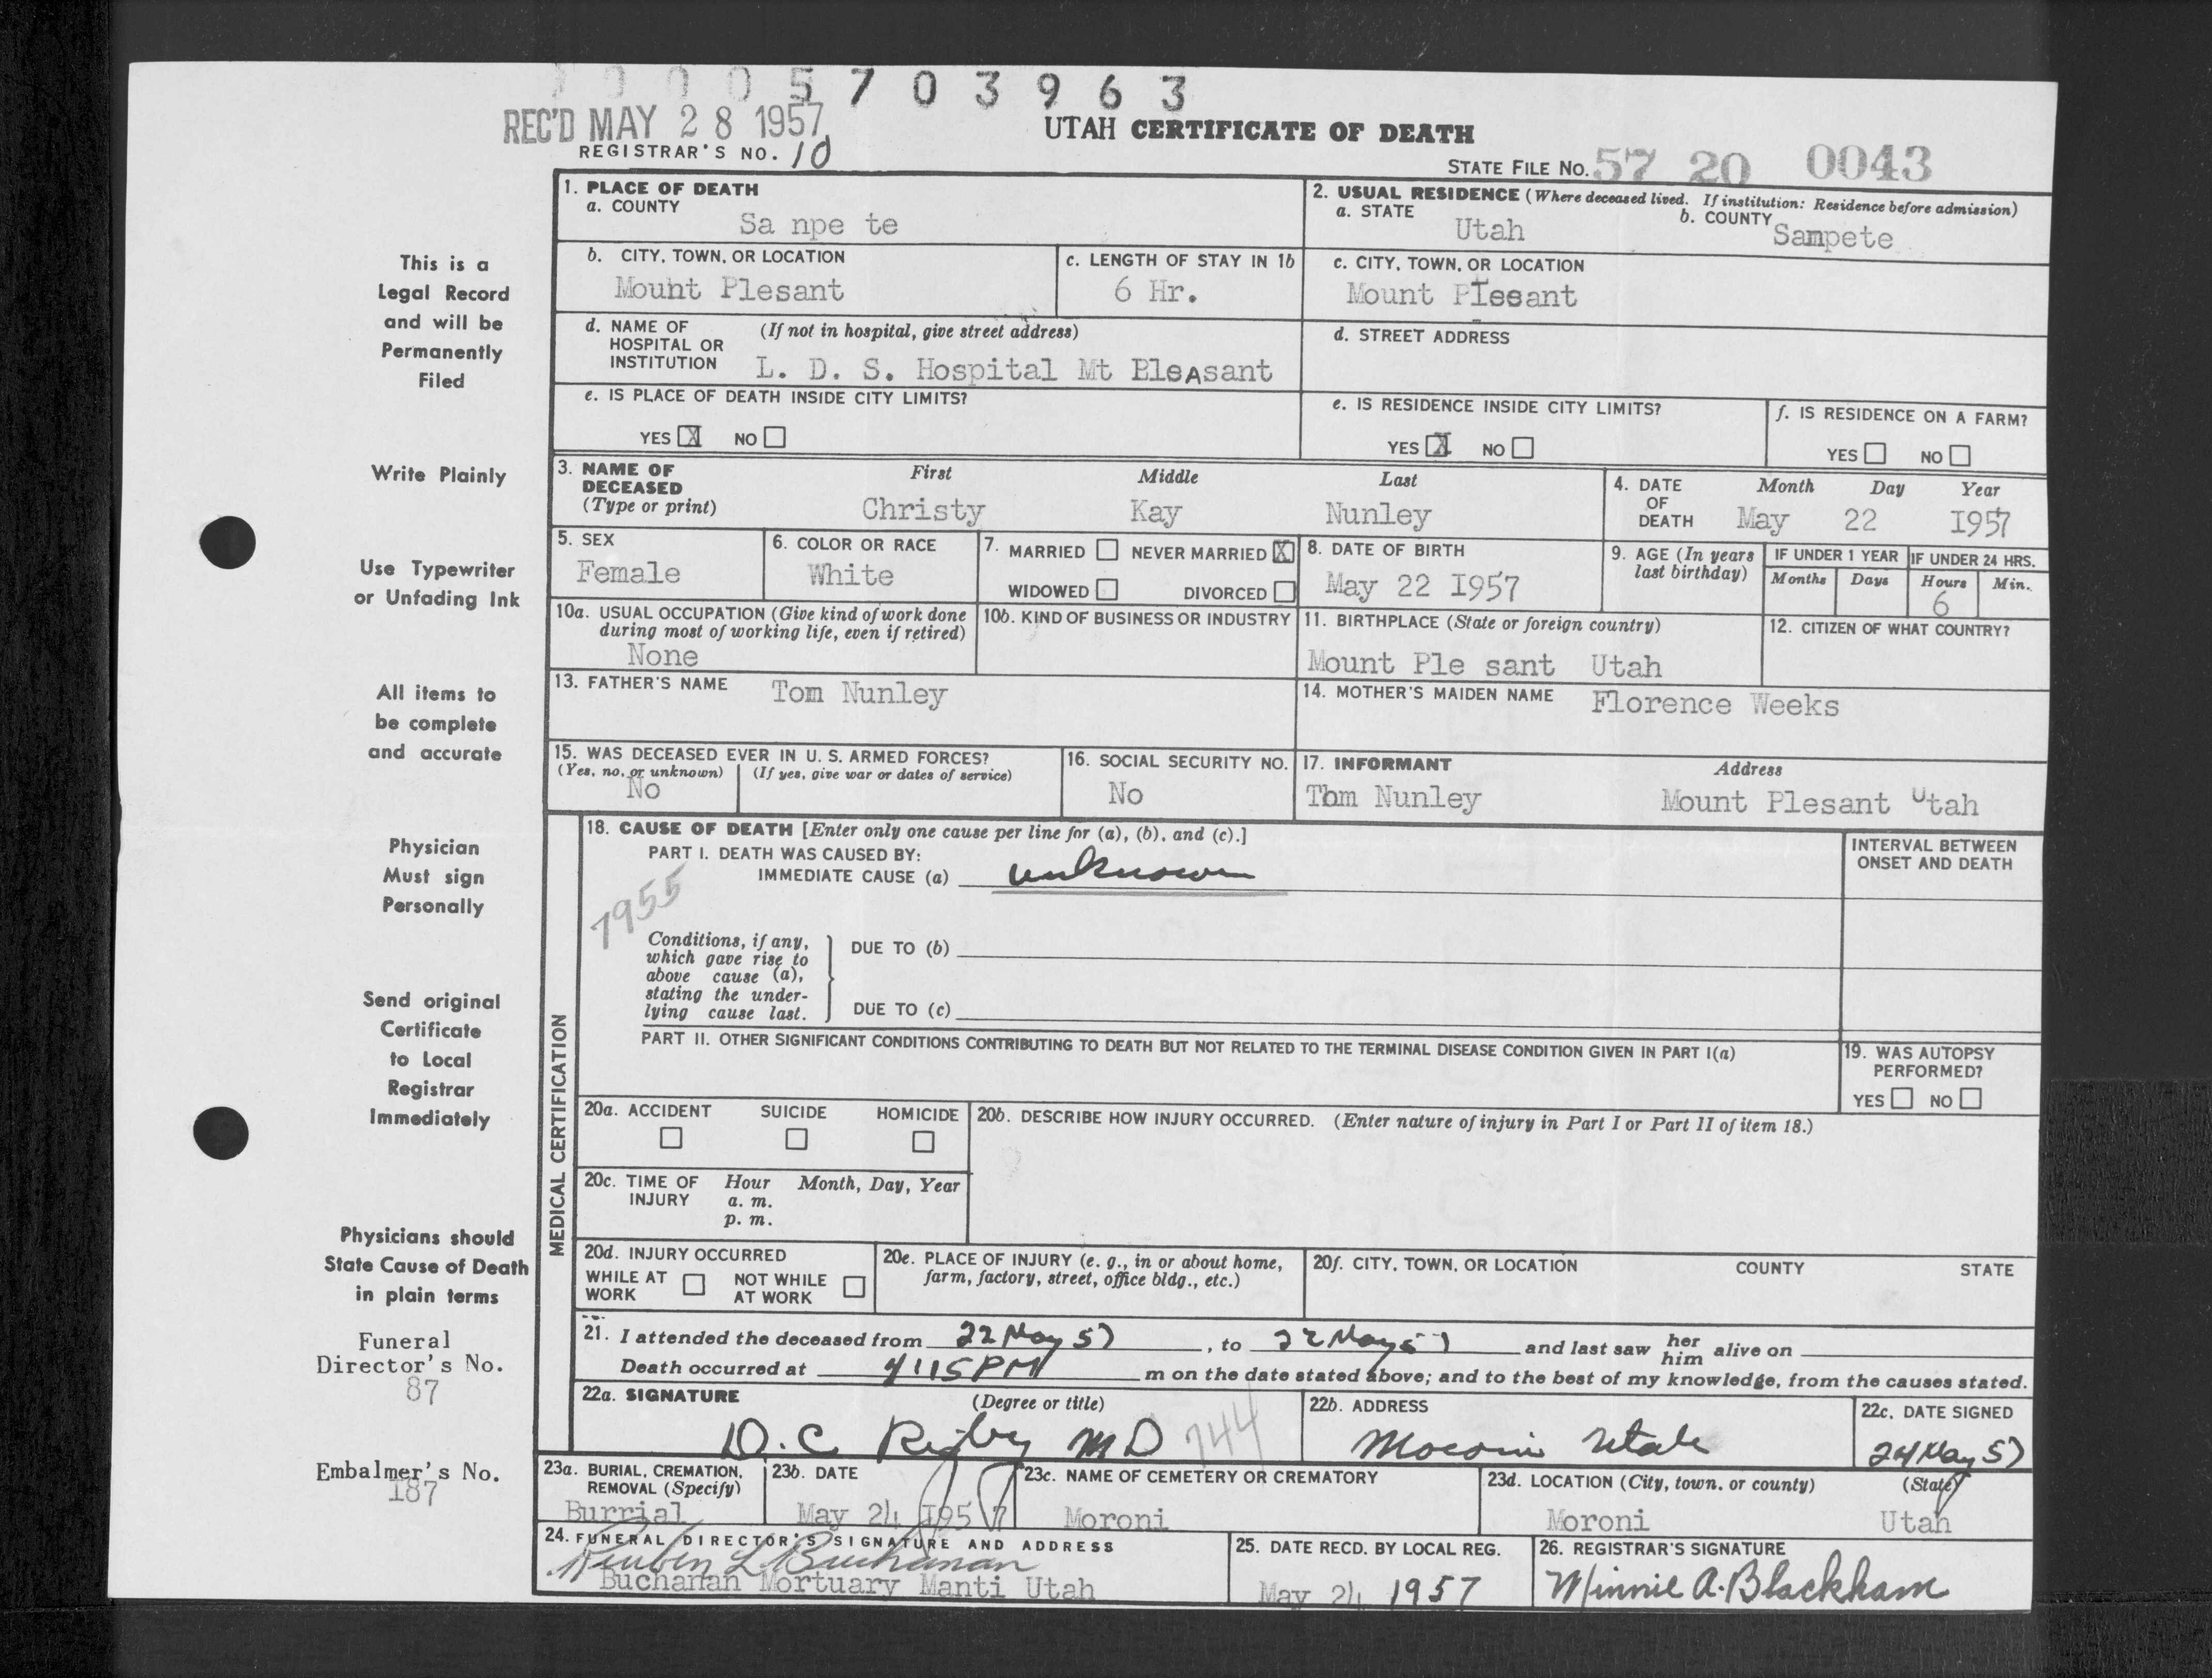 5 7 0 3 9 6 3
REC'D MAY 28 1957
UTAH CERTIFICATE OF DEATH
REGISTRAR'S NO. 10
STATE FILE NO. 57 20 0043
This is a
Legal Record
and will be
Permanently
Filed
Write Plainly
Use Typewriter
or Unfading Ink
All items to
be complete
and accurate
Physician
Must sign
Personally
Send original
Certificate
to Local
Registrar
Immediately
Physicians should
State Cause of Death
in plain terms
Funeral
Director's No.
87
Embalmer's No.
187
1. PLACE OF DEATH
a. COUNTY
Sa npe te
2. USUAL RESIDENCE (Where deceased lived. If institution: Residence before admission)
a. STATE
Utah
b. COUNTY
Sampete
b. CITY, TOWN, OR LOCATION
Mount Plesant
c. LENGTH OF STAY IN 1b
6 Hr.
c. CITY, TOWN, OR LOCATION
Mount Plesant
d. NAME OF HOSPITAL OR INSTITUTION
(If not in hospital, give street address)
L. D. S. Hospital Mt PleAsant
d. STREET ADDRESS
e. IS PLACE OF DEATH INSIDE CITY LIMITS?
YES X NO
e. IS RESIDENCE INSIDE CITY LIMITS?
YES X NO
f. IS RESIDENCE ON A FARM?
YES NO
3. NAME OF DECEASED
(Type or print)
First Middle Last
Christy Kay Nunley
4. DATE OF DEATH
Month Day Year
May 22 I957
5. SEX
Female
6. COLOR OR RACE
White
7. MARRIED NEVER MARRIED X
WIDOWED DIVORCED
8. DATE OF BIRTH
May 22 I957
9. AGE (In years last birthday)
IF UNDER 1 YEAR
Months Days
IF UNDER 24 HRS.
Hours Min.
6
10a. USUAL OCCUPATION (Give kind of work done during most of working life, even if retired)
None
10b. KIND OF BUSINESS OR INDUSTRY
11. BIRTHPLACE (State or foreign country)
Mount Ple sant Utah
12. CITIZEN OF WHAT COUNTRY?
13. FATHER'S NAME
Tom Nunley
14. MOTHER'S MAIDEN NAME
Florence Weeks
15. WAS DECEASED EVER IN U. S. ARMED FORCES?
(Yes, no, or unknown) (If yes, give war or dates of service)
No
16. SOCIAL SECURITY NO.
No
17. INFORMANT Address
Tom Nunley Mount Plesant Utah
MEDICAL CERTIFICATION
18. CAUSE OF DEATH [Enter only one cause per line for (a), (b), and (c).]
PART I. DEATH WAS CAUSED BY:
IMMEDIATE CAUSE (a) unknown
7955
INTERVAL BETWEEN ONSET AND DEATH
Conditions, if any, which gave rise to above cause (a), stating the under-lying cause last.
DUE TO (b)
DUE TO (c)
PART II. OTHER SIGNIFICANT CONDITIONS CONTRIBUTING TO DEATH BUT NOT RELATED TO THE TERMINAL DISEASE CONDITION GIVEN IN PART I(a)
19. WAS AUTOPSY PERFORMED?
YES NO
20a. ACCIDENT SUICIDE HOMICIDE
20b. DESCRIBE HOW INJURY OCCURRED. (Enter nature of injury in Part I or Part II of item 18.)
20c. TIME OF INJURY
Hour Month, Day, Year
a. m.
p. m.
20d. INJURY OCCURRED
WHILE AT WORK NOT WHILE AT WORK
20e. PLACE OF INJURY (e. g., in or about home, farm, factory, street, office bldg., etc.)
20f. CITY, TOWN, OR LOCATION COUNTY STATE
21. I attended the deceased from 22 May 57, to 22 May 57 and last saw her him alive on
Death occurred at 4:15 PM m on the date stated above; and to the best of my knowledge, from the causes stated.
22a. SIGNATURE (Degree or title)
D. C Rigby MD 744
22b. ADDRESS
Moroni Utah
22c. DATE SIGNED
24 May 57
23a. BURIAL, CREMATION, REMOVAL (Specify)
Burrial
23b. DATE
May 24 I957
23c. NAME OF CEMETERY OR CREMATORY
Moroni
23d. LOCATION (City, town, or county) (State)
Moroni Utah
24. FUNERAL DIRECTOR'S SIGNATURE AND ADDRESS
Reuben L Buchanan
Buchanan Mortuary Manti Utah
25. DATE RECD. BY LOCAL REG.
May 24 1957
26. REGISTRAR'S SIGNATURE
Minnie A. Blackham